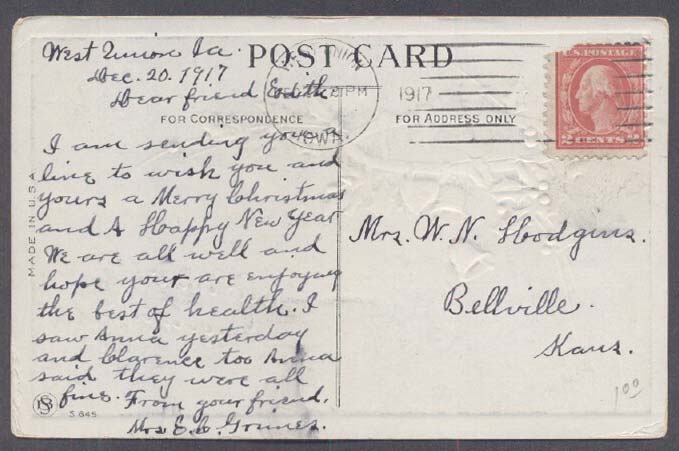 West Union Ia.
POST CARD
Dec. 20. 1917
Dear friend Edith
PM
1917
IOWA
U.S. POSTAGE
2 CENTS 2
FOR CORRESPONDENCE
FOR ADDRESS ONLY
I am sending you a
line to wish you and
yours a Merry Christmas
and A Happy New Year
We are all well and
hope your are enjoying
the best of health. I
saw Anna yesterday
and Clarence too Anna
said they were all
fine. From your friend,
Mrs E. C. Grimes.
MADE IN U.S.A
S 645
Mrs. W. N. Hodgins.
Bellville.
Kans.
1 00